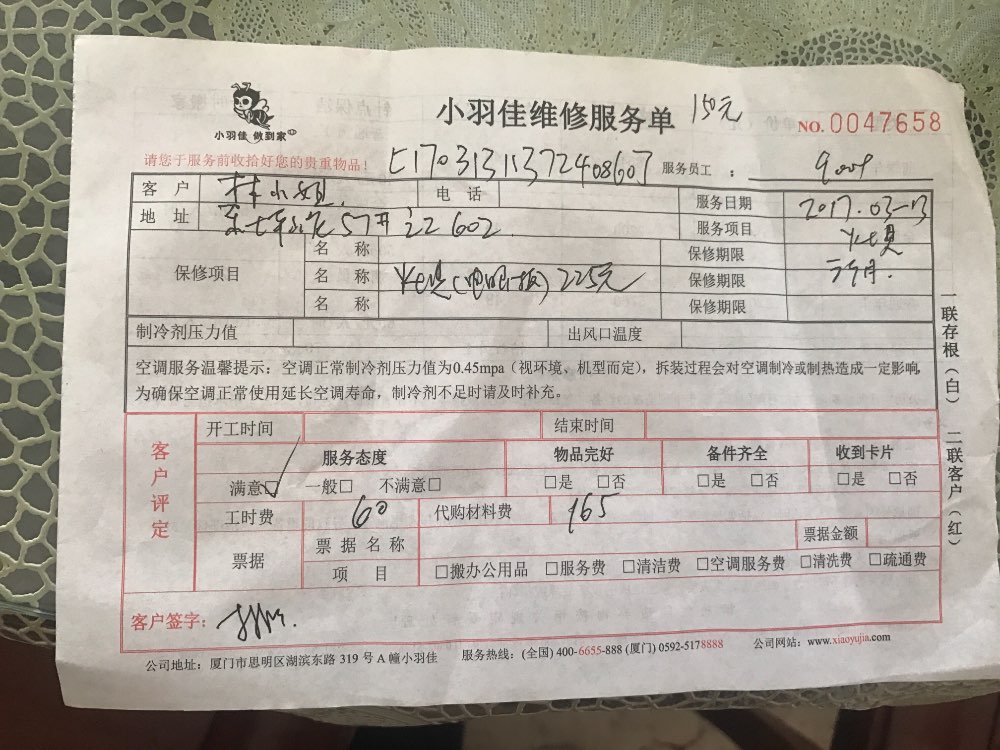 小羽佳 做到家
小羽佳维修服务单 150元
NO. 0047658
请您于服务前收拾好您的贵重物品！
服务员工 ：
客 户 林小姐 电 话 服务日期 2017.03-13
地 址 602 服务项目
保修项目 名 称 保修期限
名 称 225元 保修期限
名 称 保修期限
制冷剂压力值 出风口温度
空调服务温馨提示：空调正常制冷剂压力值为0.45mpa（视环境、机型而定），拆装过程会对空调制冷或制热造成一定影响，
为确保空调正常使用延长空调寿命，制冷剂不足时请及时补充。
一联存根（白） 二联客户（红）
客户评定
开工时间 结束时间
服务态度 物品完好 备件齐全 收到卡片
满意☑ 一般□ 不满意□ □是 □否 □是 □否 □是 □否
工时费 60 代购材料费 165
票据 票据名称 票据金额
项 目 □搬办公用品 □服务费 □清洁费 □空调服务费 □清洗费 □疏通费
客户签字：
公司地址：厦门市思明区湖滨东路 319 号 A 幢小羽佳 服务热线：(全国) 400-6655-888 (厦门) 0592-5178888 公司网站：www.xiaoyujia.com